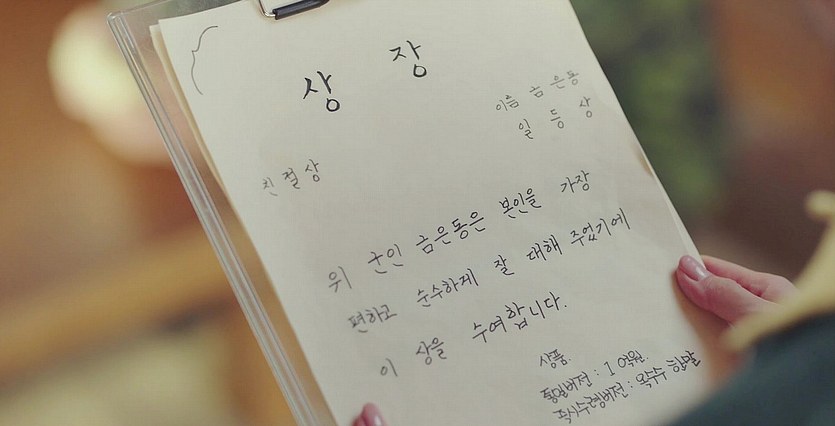 상 장
이름 금은동
일 등 상
친절상
위 군인 금은동은 본인을 가장
편하고 순수하게 잘 대해 주었기에
이 상을 수여합니다.
상품
통일버전 : 1억원.
즉시수령버전 : 옥수수 한 알